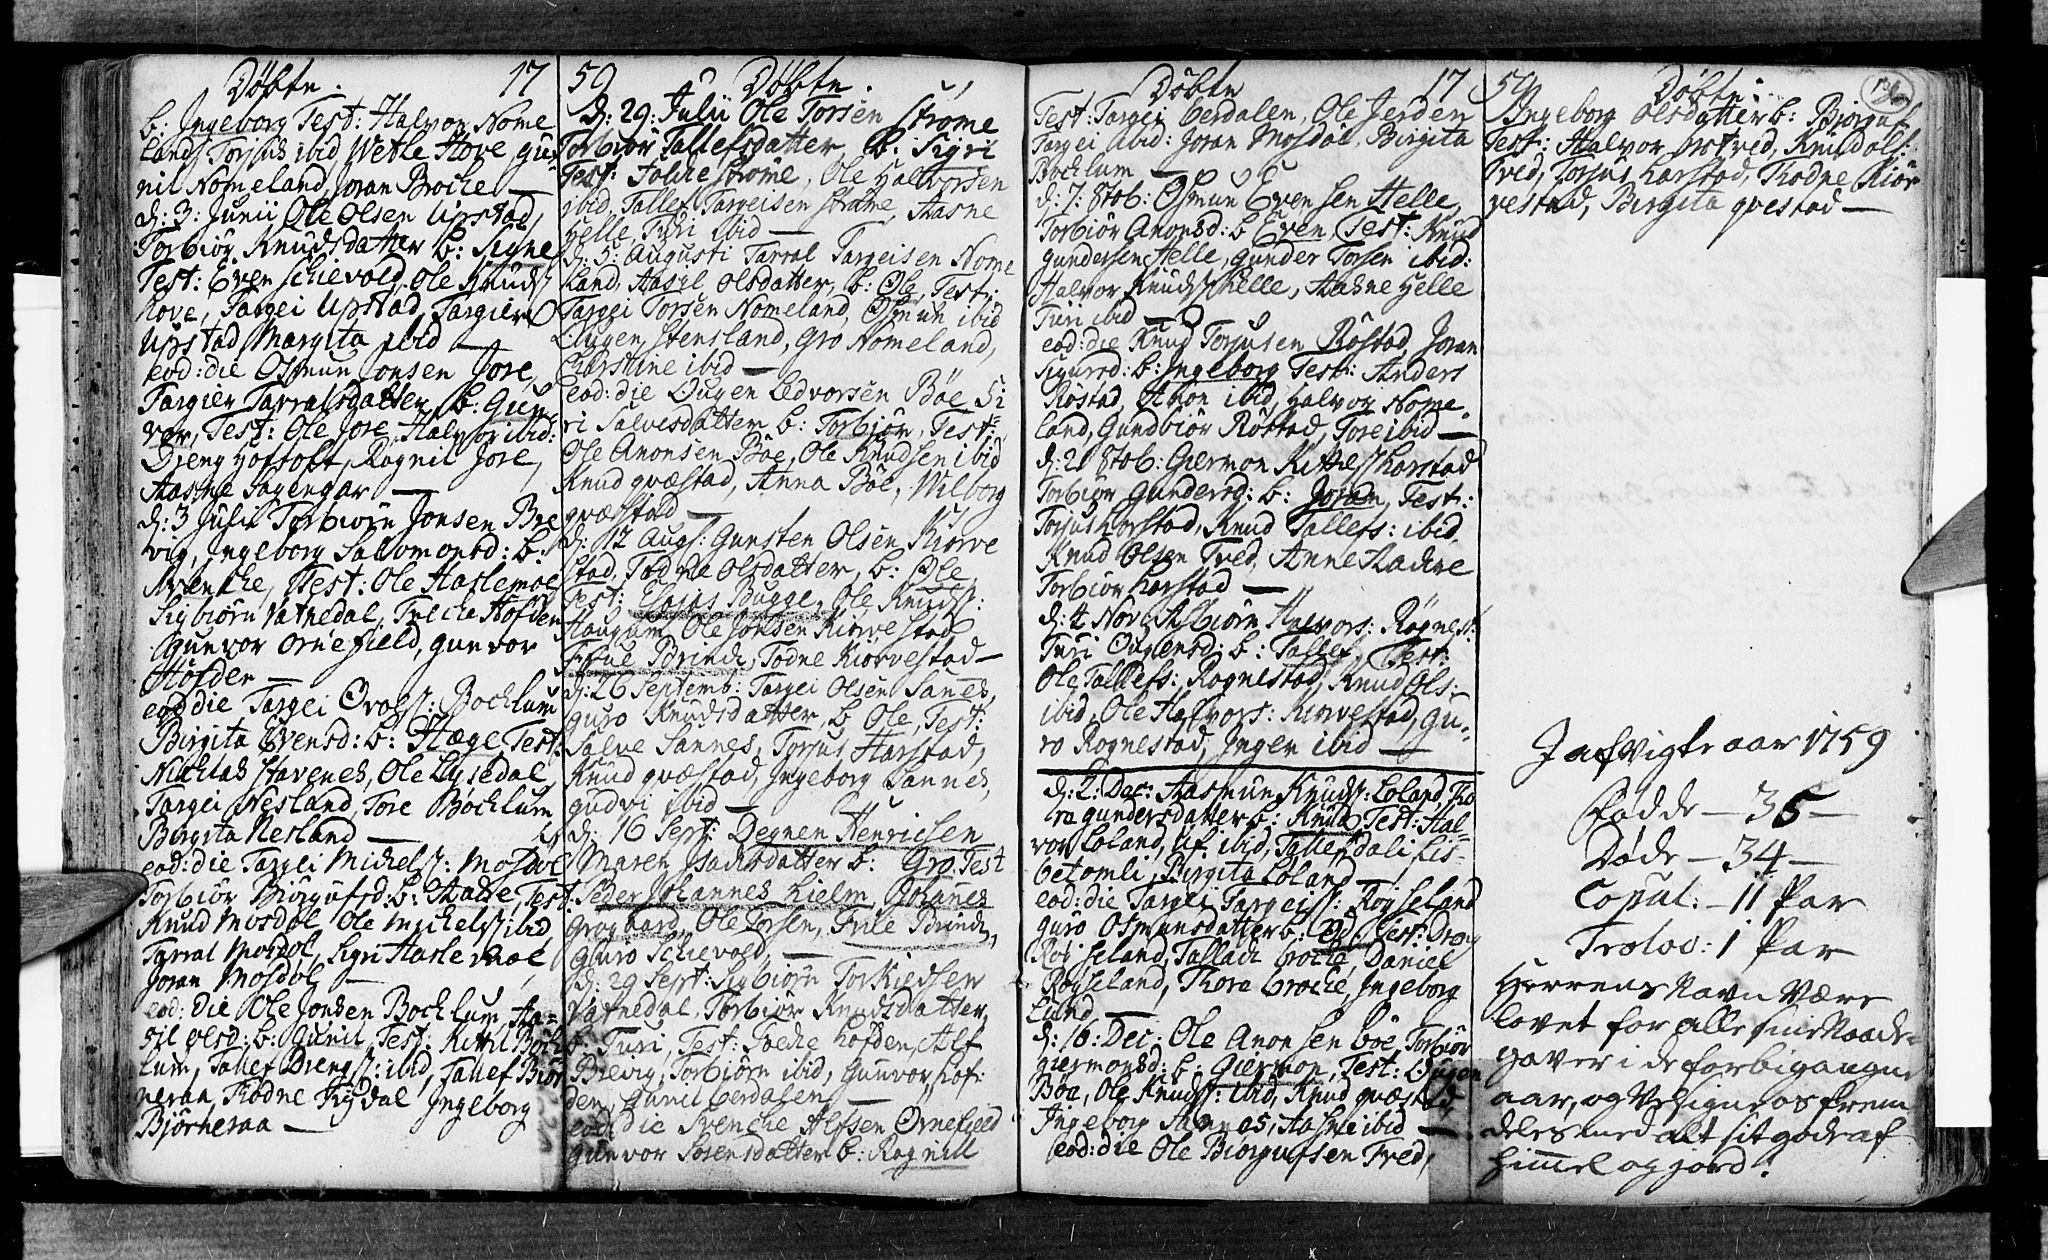 Døbte. 17
b: Ingeborg Test: Halvor Nome
land, Torjus ibid, Wetle Hove, gun
nil Nomeland, Joran Broche —
d: 3: Junii Ole Olsen Upstad,
Torbiør Knudsdatter b: Signe
Test: Even Schievold, Ole Knuds
hove, Targei Upstad, Targier
Upstad, Margita ibid —
eod: die Osmun Jonsen Jore,
Targier Tarralsdatter b: Gun
vor, Test: Ole Jore, Halvor ibid:
Dreng Hoftoft, Ragnil Jore,
Aasne
d: 3 Julii Torbiørn Jonsen Bre
vig, Ingeborg Salvomonsd: b:
Svenche, Test: Ole Haslemoe
Sigbiørn Vatnedal, Folche Hofden
Gunvor Ornefield, gunvor
Hofden —
eod die Targei Ovals: Bochlum
Birgita Evensd: b: Hæge, Test:
Nichlas Stavenes, Ole Lysedal,
Targei Nesland, Tore Bøchlum
Birgita Nesland —
eod: die Targei Michels: Mosdøl
Torbiør Biørgufsd: b: Aasne, Test.
Knud Mosdøl, Ole Michels: ibid
Tarral Mosdøl, Sigri Haslemoe
Joran Mosdøl —
eod: die Ole Jonsen Bochlum, Aa=
sil olsd: b: Gunil, Test: Kittil Boch
lum, Tallef Drengs: ibid, Tallef Biør
neraa, Todne Rysdal, Ingeborg
Bjørneraa —
59 Døbte.
d: 29: Julii Ole Torsen Strøme
Torbiør Tallefsdatter b: Sigri
Test: Folche Strøme, Ole Halvorsen
ibid, Tallef Targeisen Strøme, Aasne
Helle, Turi ibid —
d: 5: Augusti Tarral Targeisen Nome
land, Aasil Olsdatter, b: Ole, Test:
Targei Torsen Nomeland, Osmun ibid
Ougen Stensland, Gro Nomeland,
Christine ibid —
eod: die Ougen Ledvorsen Bøe Si
ri Salvesdatter b: Torbiør, Test:
Ole Anonsen Bøe, Ole Knudsen ibid
Knud qvæstad, Anna Bøe, Wilborg
qvæstad —
d: 12 Augs: Gunsten Olsen Kiørve
stad, Todne Olsdatter, b: Ole,
Test: Elias Bugge, Ole Knuds:
Haugum, Ole Jonsen Kiørvestad
Frue Brinch, Todne Kiørvestad —
d: 26 Septemb: Targei Olsen Sanes,
guro Knudsdatter, b: Ole, Test:
Salve Sannes, Torjus Harstad,
Knud qvæstad, Ingeborg Sannes,
gudvi ibid —
d: 16 Sept: Degnen Henricsen
Maren Isachsdatter b: Gro, Test
Peder Johannes Hielm, Johannes
Grogbarg, Ole Torsen, Frue Brinch,
Guro Schievold, —
d: 29 Sept: Sigbiørn Torkieldsen
Vatnedal, Torbiør Knudsdatter,
b: Turi, Test: Folche Hofden, Alf
Brevig, Torbiørn ibid, Gunvor hof:
den, Gunil berdalen —
eod: die Svenche Alfsen Ornefield
Gunvor Sorensdatter b: Ragnill
Døbte 17
Test: Targei berdalen, Ole Jerden
Targei ibid: Joran Mosdøl, Birgita
Bochlum —
d: 7: 8tob: Osmun Evensen Helle,
Torbiør Anonsd: b Even, Test: Knud
Gundersen Helle, gunder Torsen ibid:
Halvor Knuds: Helle, Aasne Helle
Turi ibid —
eod: die Knud Torjusen Røstad, Joran
Sigursd: b: Ingeborg Test: Anders
Røstad, Anon ibid, Halvor Nome
land, Gundbiør Røstad, Tore ibid —
d: 21 8tob: Giermon Kittels: Harstad
Torbiør Gundersd: b: Joran, Test:
Torjus Harstad, Knud Tallefs: ibid,
Knud Olsen Fred, Anne Aachre
Torbiør Harstad —
d: 4 Nov: Asbiørn Halvors: Røgnes:
Turi Ougensd: b: Tallef, Test:
Ole Tallefs: Rognestad, Knud Ols:
ibid, Ole Halvors: Kirvestad, Gu=
ro Rognestad, Inger ibid —
d: 2: Dec: Aasmun Knuds: Loland, Tho
ra gundersdatter b: Knud, Test: Hal
vor Loland, Uf ibid, Tallef dali Lis=
betomli, Birgita Loland —
eod: die Targei Targeis: Røysland
guro Osmunsdatter b: Od, Test: Dreng
Røiseland, Tallach broche, Daniel
Røyseland, Thora broche, Ingeborg
Lund —
d: 16: Dec: Ole Anonsen bøe, Torbiør
giermonsd: b: Giermon, Test: Ougen
Bøe, Ole Knuds: ibid, Knud qvæstad,
Ingeborg Sannes, Aasne ibid —
eod: die Ole Biørgufsen Fred,
59 Døbte:
Ingeborg Olsdatter b: Biørguf
Test: Halvor Fred, Knud Ols:
Fred, Torjus Harstad, Todne Kiør
vestad, Birgita qvestad —
I afvigte aar 1759
Fødde — 35 —
Døde — 34 —
Copul: — 11 Par
Trolov: 1 Par
Herrens Navn Være
lovet for alle sine Naade-
gaver i de forbigangne
aar, og Velsigne os frem
deles med alt sit gode af
Himmel og jord.